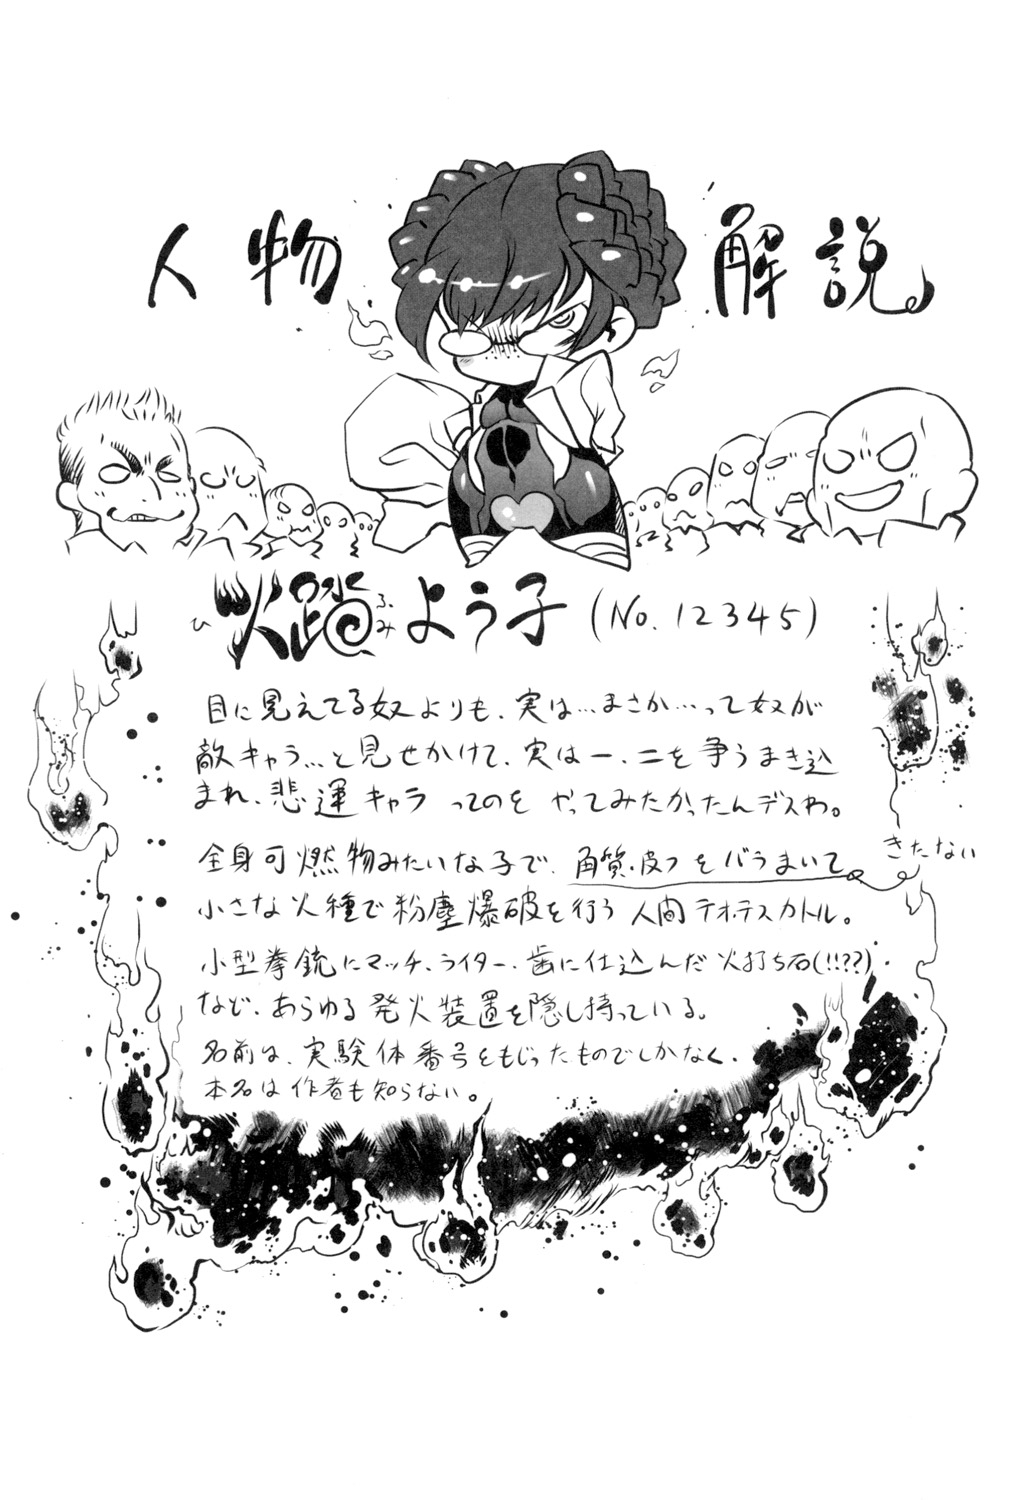 人物 解説
火踏よう子(No.12345)
ひ ふみ
目に見えてる奴よりも、実は…まさか…って奴が
敵キャラ…と見せかけて、実は一、二を争うまき込
まれ、悲運キャラってのをやってみたかったんデスわ。
全身可燃物みたいな子で、角質・皮フをバラまいて。
きたない
小さな火種で粉塵爆破を行う人間テオ・テスカトル。
小型拳銃にマッチ、ライター、歯に仕込んだ火打ち石(!!??)
など、あらゆる発火装置を隠し持っている。
名前は、実験体番号をもじったものでしかなく、
本名は作者も知らない。